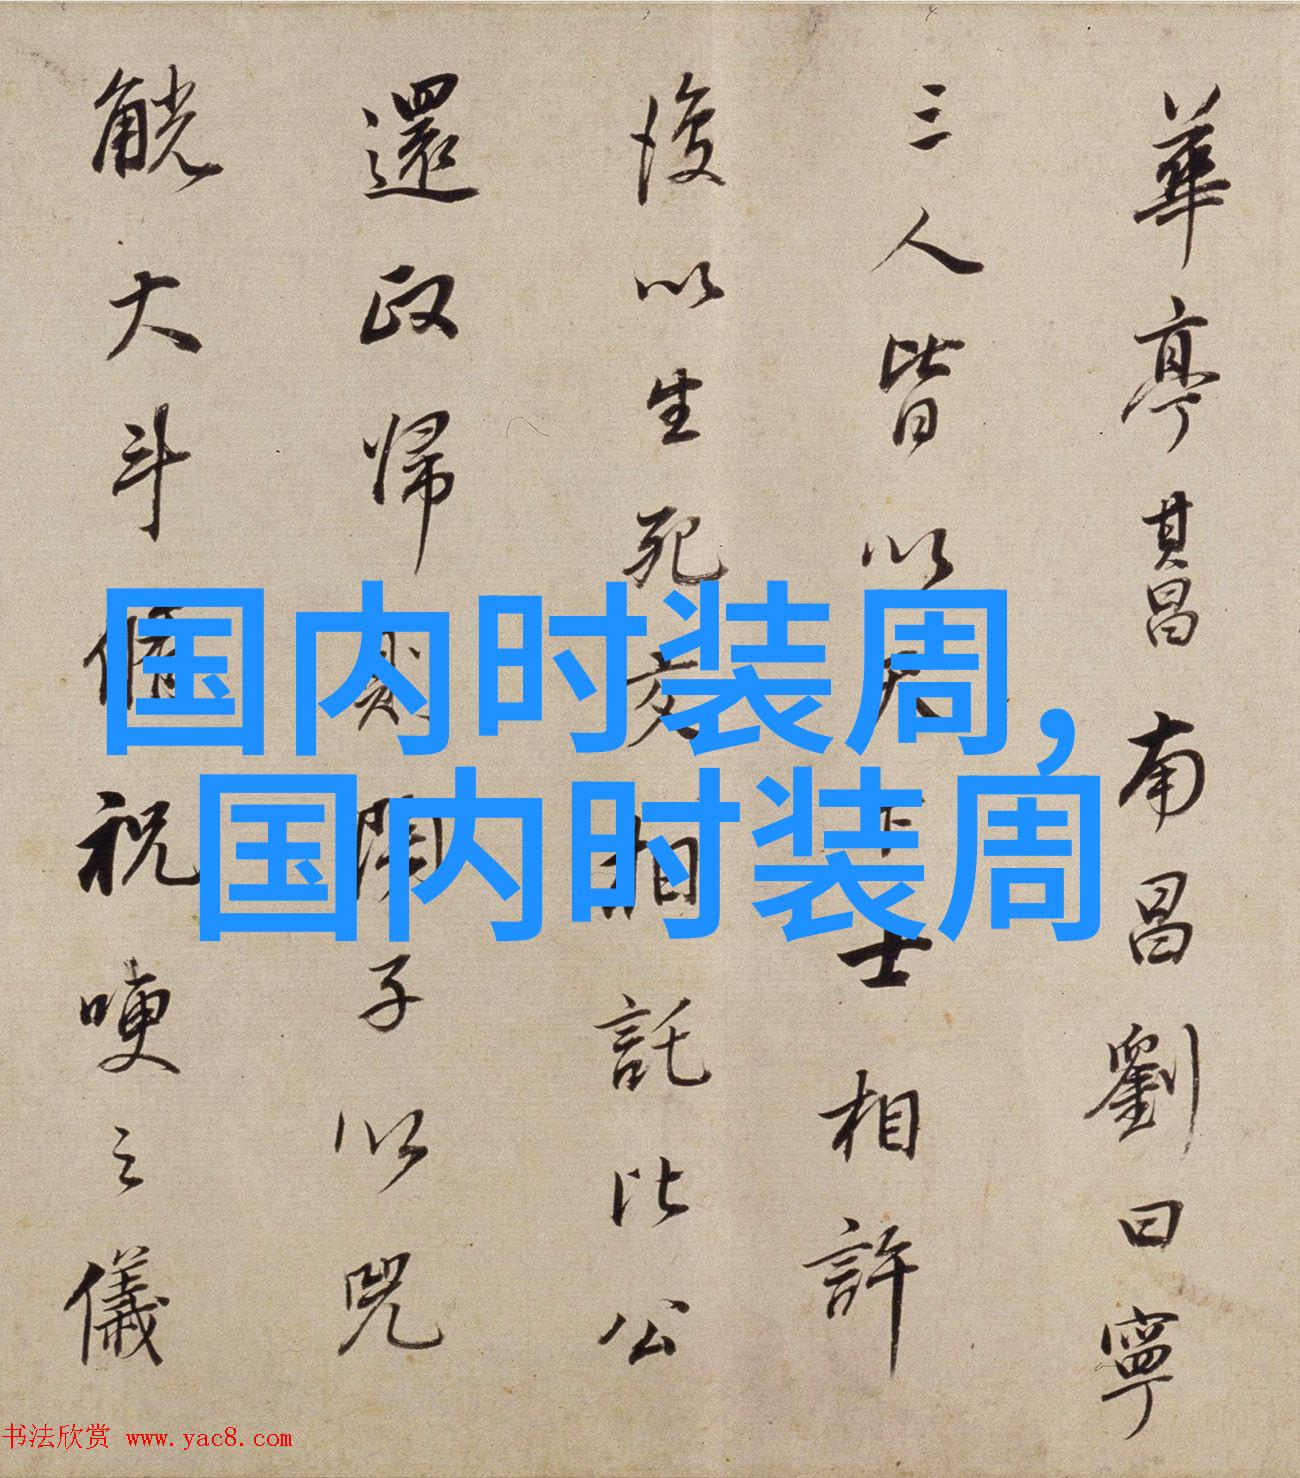 華亭其昌南昌劉曰寧
三人皆以天下士相許
後以生死交相託比公
還政歸則閱子以兕
觥大斗脩祝哽之儀
国内时装周,
国内时装周
书法欣赏 www.yac8.com